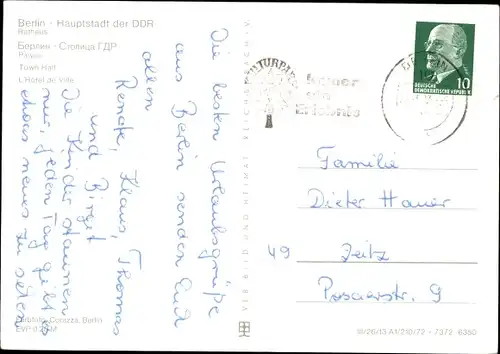 Berlin - Hauptstadt der DDR
Rathaus
Берлин - Столица ГДР
Ратуша
Town Hall
L'Hôtel de Ville
Die besten Urlaubsgrüße
aus Berlin senden Euch
allen
Renate, Klaus, Thomas
und Birgit
Die Kinder staunen
nur, jeden Tag gibt es
etwas neues zu sehen
VEB BILD UND HEIMAT REICHENBACH
KULTURPARK
immer
ein
Erlebnis
BERLIN
10
DEUTSCHE
DEMOKRATISCHE REPUBLIK
Familie
Dieter Hauer
49 Zeitz
Posaerstr. 9
Corazza, Berlin
EVP 0,20 M
III/26/13-A1/210/72 - 7372 6350